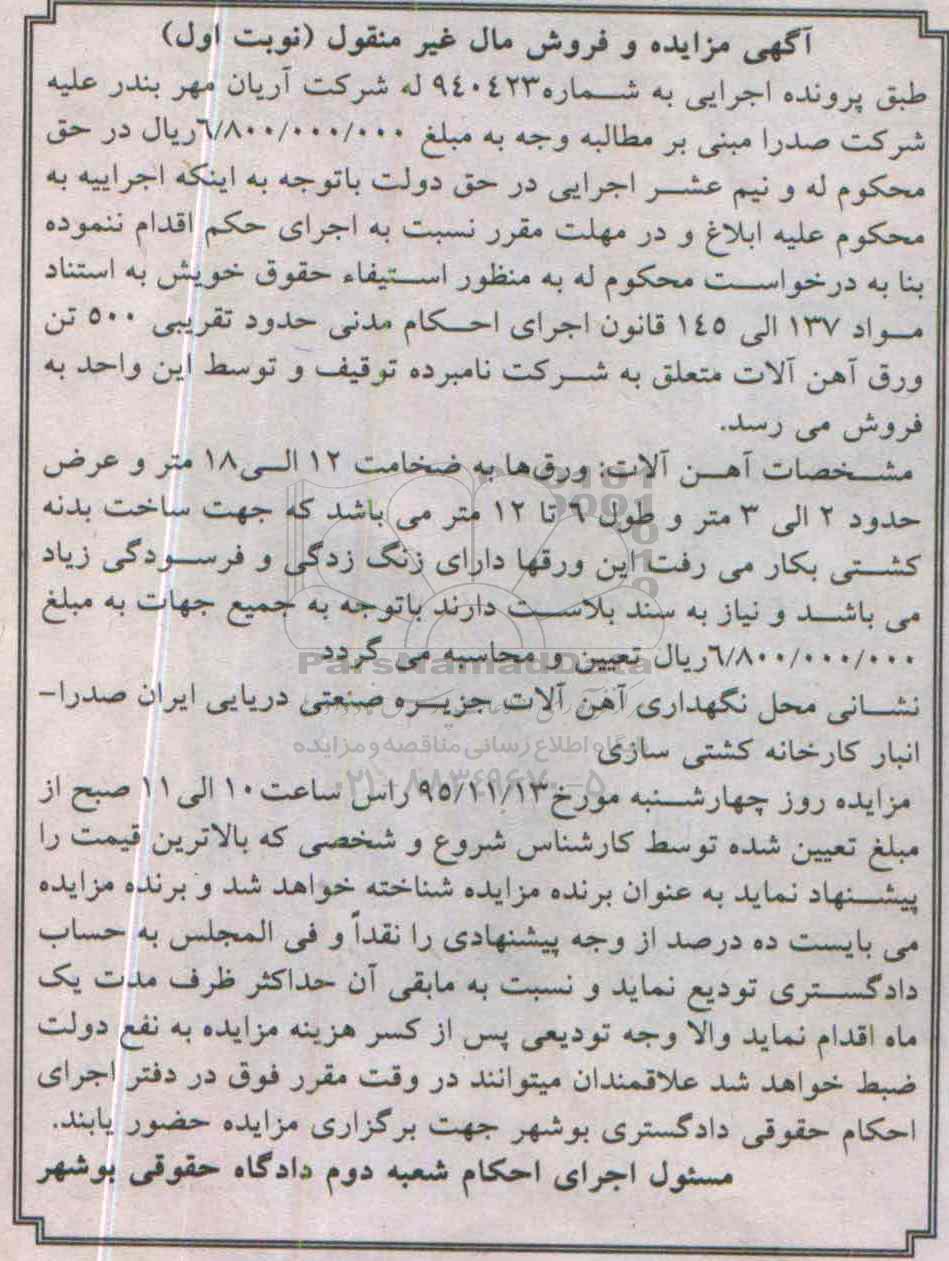 آگهی مزایده و فروش مال غیر منقول (نوبت اول)
طبق پرونده اجرایی به شماره۹۴۰۴۲۳ له شرکت آریان مهر بندر علیه
شرکت صدرا مبنی بر مطالبه وجه به مبلغ ۶/۸۰۰/۰۰۰/۰۰۰ریال در حق
محکوم له و نیم عشر اجرایی در حق دولت باتوجه به اینکه اجراییه به
محکوم علیه ابلاغ و در مهلت مقرر نسبت به اجرای حکم اقدام ننموده
بنا به درخواست محکوم له به منظور استیفاء حقوق خویش به استناد
مواد ۱۳۷ الی ۱۴۵ قانون اجرای احکام مدنی حدود تقریبی ۵۰۰ تن
ورق آهن آلات متعلق به شرکت نامبرده توقیف و توسط این واحد به
فروش می رسد.
مشخصات آهن آلات: ورق‌ها به ضخامت ۱۲ الی۱۸ متر و عرض
حدود ۲ الی ۳ متر و طول ۶ تا ۱۲ متر می باشد که جهت ساخت بدنه
کشتی بکار می رفت این ورقها دارای زنگ زدگی و فرسودگی زیاد
می باشد و نیاز به سند بلاست دارند باتوجه به جمیع جهات به مبلغ
۶/۸۰۰/۰۰۰/۰۰۰ریال تعیین و محاسبه می گردد
ParsNamadData
نشانی محل نگهداری آهن آلات جزیره صنعتی دریایی ایران صدرا-
انبار کارخانه کشتی سازی
پایگاه اطلاع رسانی مناقصه و مزایده
۰۲۱-۸۸۳۴۹۶۷۰-۵
مزایده روز چهارشنبه مورخ۹۵/۱۱/۱۳ راس ساعت۱۰ الی۱۱ صبح از
مبلغ تعیین شده توسط کارشناس شروع و شخصی که بالاترین قیمت را
پیشنهاد نماید به عنوان برنده مزایده شناخته خواهد شد و برنده مزایده
می بایست ده درصد از وجه پیشنهادی را نقداً و فی المجلس به حساب
دادگستری تودیع نماید و نسبت به مابقی آن حداکثر ظرف مدت یک
ماه اقدام نماید والا وجه تودیعی پس از کسر هزینه مزایده به نفع دولت
ضبط خواهد شد علاقمندان میتوانند در وقت مقرر فوق در دفتر اجرای
احکام حقوقی دادگستری بوشهر جهت برگزاری مزایده حضور یابند.
مسئول اجرای احکام شعبه دوم دادگاه حقوقی بوشهر